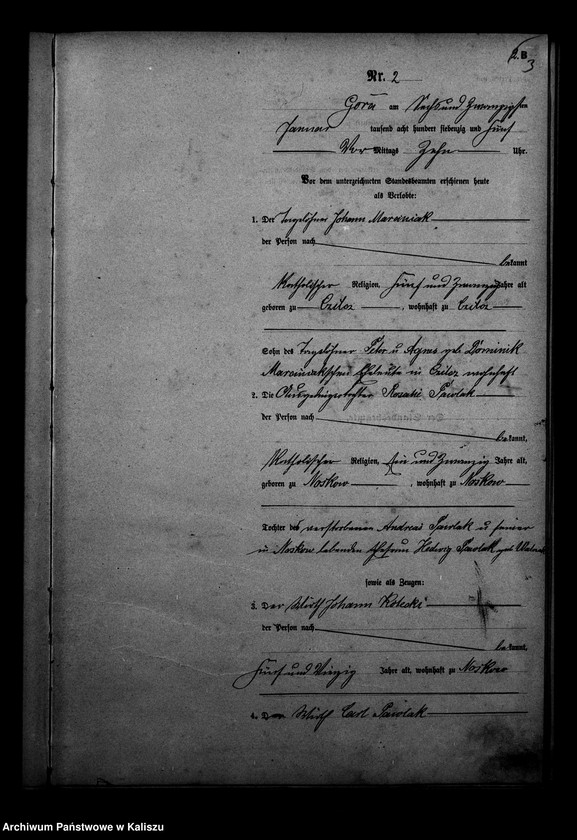 2. B
3
Nr. 2
Góra am Sechs und Zwanzigsten
Januar tausend acht hundert siebenzig und fünf
Vor Mittags Zehn Uhr.
Vor dem unterzeichneten Standesbeamten erschienen heute
als Verlobte:
1. Der Tagelöhner Johann Marciniak
der Person nach
bekannt
Katholischer Religion, Fünf und Zwanzig Jahre alt
geboren zu , wohnhaft zu
Sohn des Tagelöhner Peter u Agnes geb. Dominik
Marciniakschen Eheleute in wohnhaft
2. Die Rosalie Pawlak
der Person nach
bekannt,
Katholischer Religion, ein und Zwanzig Jahre alt,
geboren zu Noskow , wohnhaft zu Noskow
Tochter des verstorbenen Andreas Pawlak u seiner
in Noskow lebenden Ehefrau Hedwig Pawlak geb
sowie als Zeugen:
3. Der Wirth Johann
der Person nach
bekannt,
Fünf und Vierzig Jahre alt, wohnhaft zu Noskow
4. Der Wirth Carl Pawlak
Archiwum Państwowe w Kaliszu